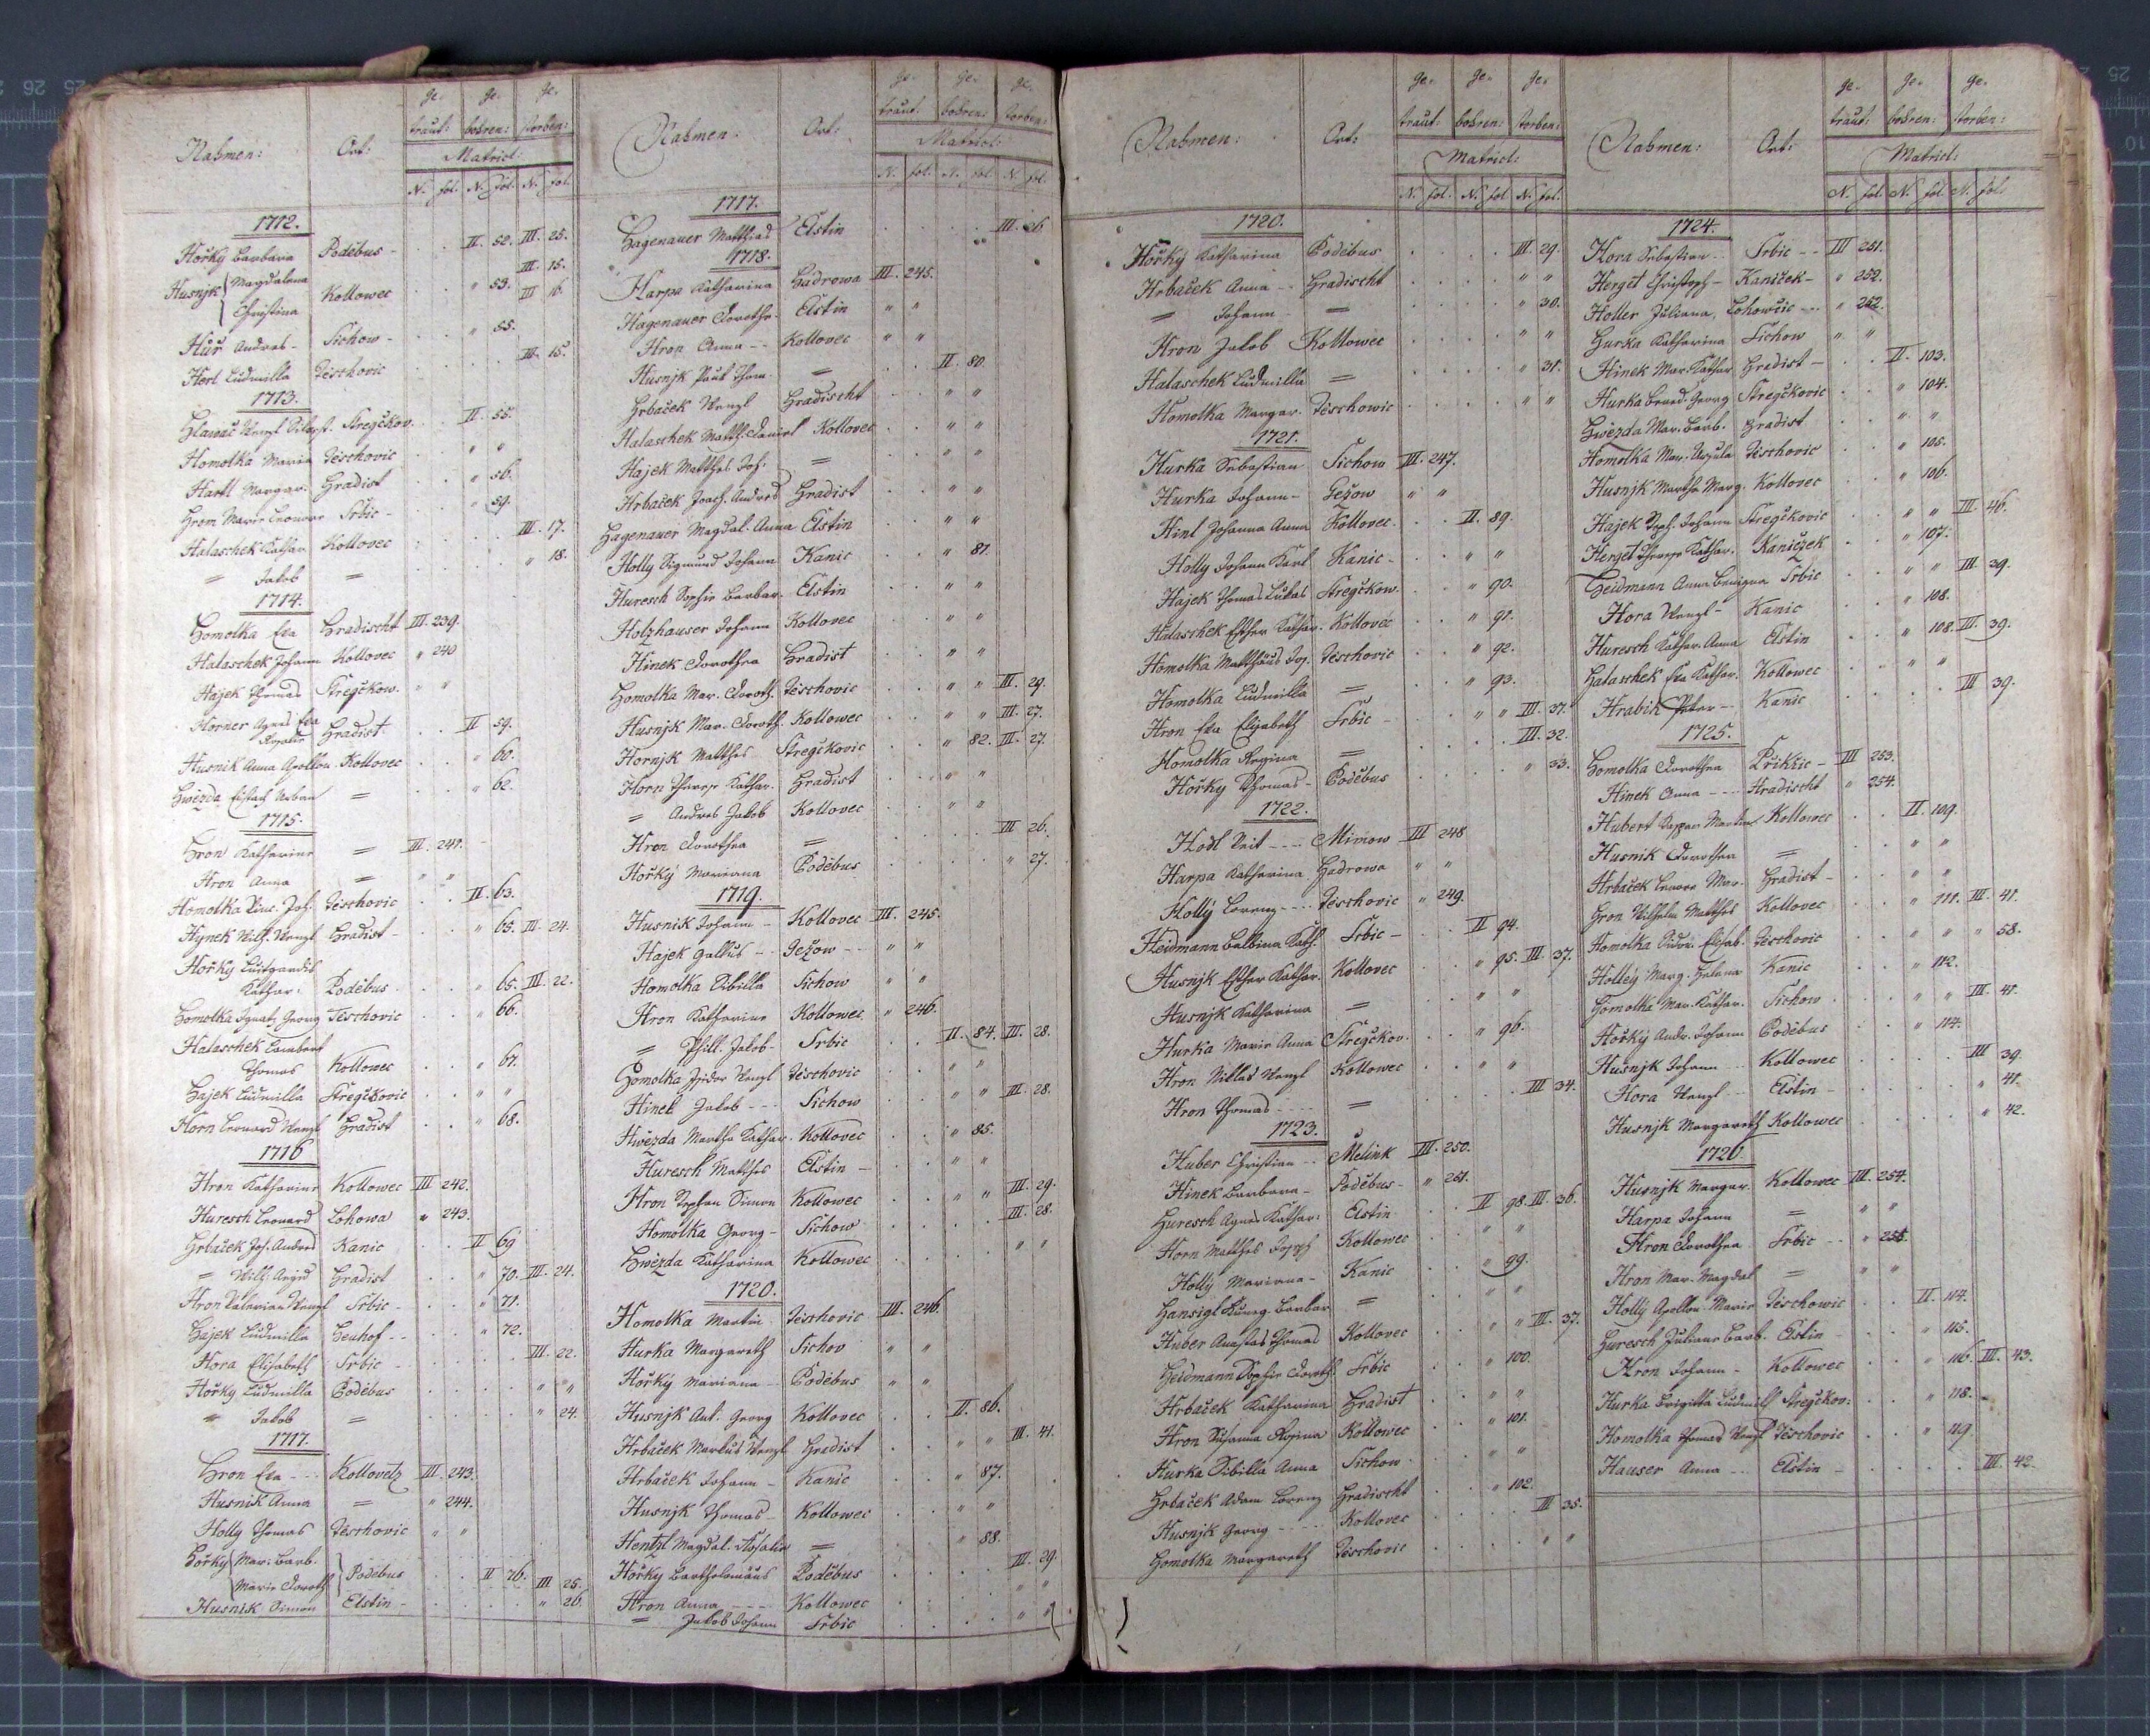 Nahmen: Ort: ge- ge- ge-
traut: bohren: storben:
Matricl:
N. fol. N. fol. N. fol.
1712.
Hořky Barbara Podèbus - II. 52. III. 25.
Husnjk Magdalena Kollowec " 53. III. 15.
Christina III 16.
Huř Andres - Tichow - " 55.
Hert Ludmilla Teschovic III. 15.
1713.
Hlawač Wenzl Stregčkov. II. 55.
Homolka Maria Teschovic " "
Hartl Margar. Gradist " 56.
Hron Maria Leonore Srbic - " 59.
Halaschek Kathar. Kollovec III. 17.
= Jakob = " 18.
1714.
Homolka Eva Gradischt III. 239.
Halaschek Johann Kollovec " 240
Hajek Thomas Stregčkow. " "
Horner Agnes Eva
Rosalia Gradist II 59.
Husnik Anna Apollon. Kollovec " 60.
Hwězda Eustach Urban = " 62.
1715.
Hron Katharina = III. 241.
Hron Anna = " "
Homolka Vinc. Jos. Teschovic II. 63.
Hynek Wilh. Wenzl Gradist - " 65. III. 24.
Hořky Luitgardis
Kathar: Podèbus " 65. III. 22.
Homolka Ignatz Georg Teschovic " 66.
Halaschek Lambert
Thomas Kollowec " 67.
Hajek Ludmilla Stregčkovic " "
Horn Leonard Wenzl Gradist " 68.
1716
Hron Katharina Kollowec III 242.
Huresch Leonard Lohowa " 243.
Hrbaček Jos. Andres Kanic II 69
= Wilh. Gradist " 70. III. 24.
Hron Valerian Wenzl Srbic - " 71.
Hajek Ludmilla Heuhof - " 72.
Hora Elisabeth Srbic - III. 22.
Hořky Ludmilla Podèbus " "
= Jakob = " 24.
1717.
Hron Eva - Kollovetz III. 243.
Husnik Anna = " 244.
Holly Thomas Teschovic " "
Hořky Mar. Barb.
Maria Doroth Podèbus II 76. III 25.
Husnik Simon Elstin - " 26.
Nahmen: Ort: ge- ge- ge-
traut: bohren: storben:
Matricl:
N. fol. N. fol. N. fol.
1717.
Hagenauer Matthias Elstin III. 26
1718.
Harpa Katharina Hadrowa III. 245.
Hagenauer Dorothe. Elstin " "
Hron Anna - Kollovec " "
Husnjk Paul Thom. = II. 80.
Hrbaček Wenzl Hradischt " "
Halaschek Matth. Daniel Kollovec " "
Hajek Matthes Joh. = " "
Hrbaček Joach. Andres Gradist " "
Hagenauer Magdal. Anna Elstin " "
Holly Sigmund Johann Kanic " 81.
Huresch Sophie Barbar. Elstin " "
Holzhauser Johann Kollovec " "
Hinek Dorothea Gradist " "
Homolka Mar. Doroth. Teschovic " " III. 29.
Husnjk Mar. Doroth. Kollowec " " III. 27.
Hornjk Matthes Stregčkovic " 82. III. 27.
Horn Theres. Kathar. Gradist " "
= Andres Jakob Kollovec " "
Hron Dorothea = III 26.
Hořky Mariana Podèbus " 27.
1719.
Husnik Johann - Kollovec III. 245.
Hajek Gallus - Gežow - " "
Homolka Sibilla Tichow " "
Hron Katharina Kollowec. " 246.
= Phill. Jakob - Srbic II. 84. III. 28.
Homolka Isidor Wenzl Teschovic " "
Hinek Jakob - Tichow " " III. 28.
Hwězda Martha Kathar. Kollovec " 85.
Huresch Matthes Elstin - " "
Hron Stephan Simon Kollowec " " III. 29.
Homolka Georg - Tichow III. 28.
Hwězda Katharina Kollowec " "
1720.
Homolka Martin Teschovic III. 246.
Hurka Margareth Tichov " "
Hořky Mariana Podèbus " "
Husnjk Ant. Georg Kollovec II. 86.
Hrbaček Markus Wenzl Gradist " " III. 41.
Hrbaček Johann - Kanic " 87.
Husnjk Thomas - Kollowec " "
Hentzl Magdal. Rosalia = " 88.
Hořky Bartholomäus Podèbus III. 29.
Hron Anna - Kollowec " "
= Jakob Johann Srbic " "
Nahmen: Ort: ge- ge- ge-
traut: bohren: storben:
Matricl:
N. fol. N. fol N. fol.
1720.
Hořky Katharina Podèbus III. 29.
Hrbaček Anna - Gradischt " "
= Johann - = " 30.
Hron Jakob Kollowec " "
Halaschek Ludmilla = " 31.
Homolka Margar. Teschowic " "
1721.
Hurka Sebastian Tichow III. 247.
Hurka Johann - Gežow " "
Hinl Johanna Anna Kollovec. II. 89.
Holly Johann Karl Kanic - " "
Hajek Thomas Lukas Stregčkow. " 90.
Halaschek Esther Kathar. Kollovec " 91.
Homolka Matthäus Jos. Teschovic " 92.
Homolka Ludmilla = " 93.
Hron Eva Elisabeth Srbic - " " III 31.
Homolka Regina = III. 32.
Hořky Thomas - Podèbus " 33.
1722.
Hodl Veit - Mirirow III 248
Harpa Katharina Hadrowa " "
Holly Lorenz - Teschovic " 249.
Heidmann Balbina Kath. Srbic - II 94.
Husnjk Esther Kathar. Kollovec " 95. III 37.
Husnjk Katharina = " "
Hurka Maria Anna Stregčkov. " 96.
Hron Niklas Wenzl Kollowec " "
Hron Thomas - = III 34.
1723.
Huber Christian - Melink III. 250.
Hinek Barbara - Podèbus - " 251.
Huresch Agnes Kathar: Elstin II 98. III 36.
Horn Matthes Joseph Kollovec " "
Holly Mariana - Kanic " 99.
Hansigl Kuneg. Barbar = " "
Huber Anastas Thomas Kollovec " " III 37.
Heidmann Sophie Doroth. Srbic " 100.
Hrbaček Katharina Gradist " "
Hron Susanna Regina Kollowec " 101.
Hurka Sibilla Anna Tichow " "
Hrbaček Adam Lorenz Gradischt " 102.
Husnjk Georg - Kollovec III 35.
Homolka Margareth Teschovic " "
Nahmen: Ort: ge- ge- ge-
traut: bohren: storben:
Matricl:
N. fol. N. fol. N. fol.
1724.
Hora Sebastian - Srbic - III 251.
Herget Christoph - Kaniček - " 252.
Holler Juliana, Lohowčic - " 252.
Hurka Katharina Tichow " "
Hinek Mar. Kathar Gradist - II. 103.
Hurka Georg Stregčkovic " 104.
Hwězda Mar. Barb. Gradist " "
Homolka Mar. Ursula Teschovic " 105.
Husnjk Martha Marg. Kollovec " 106.
Hajek Soph. Johann Stregčkovic " " III 46.
Herget Theres Kathar. Kaniczek " 107.
Heidmann Anna Benigna Srbic " " III 39.
Hora Wenzl - Kanic " 108.
Huresch Kathar. Anna Elstin " 108. III. 39.
Halaschek Eva Kathar. Kollowec " "
Hrabik Peter - Kanic III 39.
1725.
Homolka Dorothea Přikžic - III 253.
Hinek Anna - Hradischt " 254.
Hubert Martin Kollowec II. 109.
Husnik Dorothea = " "
Hrbaček Leonore Mar. Gradist - " "
Hron Wilhelm Matthes Kollovec " 111. III. 41.
Homolka Elisab. Teschovic " " " 58.
Holley Marg. Helena Kanic " 112.
Homolka Mar. Kathar. Tichow " " III 41.
Hořky Andr. Johann Podèbus " 114.
Husnjk Johann - Kollowec III 39.
Hora Wenzl - Elstin - " 41.
Husnjk Margareth Kollowec " 42.
1726.
Husnjk Margar. Kollowec III. 254.
Harpa Johann = " "
Hron Dorothea Srbic - " 255.
Hron Mar. Magdal = " "
Holly Apollon. Maria Teschowic II. 114.
Huresch Juliana Barb. Elstin " 115.
Hron Johann - Kollowec " 116. III. 43.
Hurka Brigitta Ludmill Stregčkov: " 118.
Homolka Thomas Wenzl Teschovic " 119.
Hauser Anna - Elstin - III. 42.